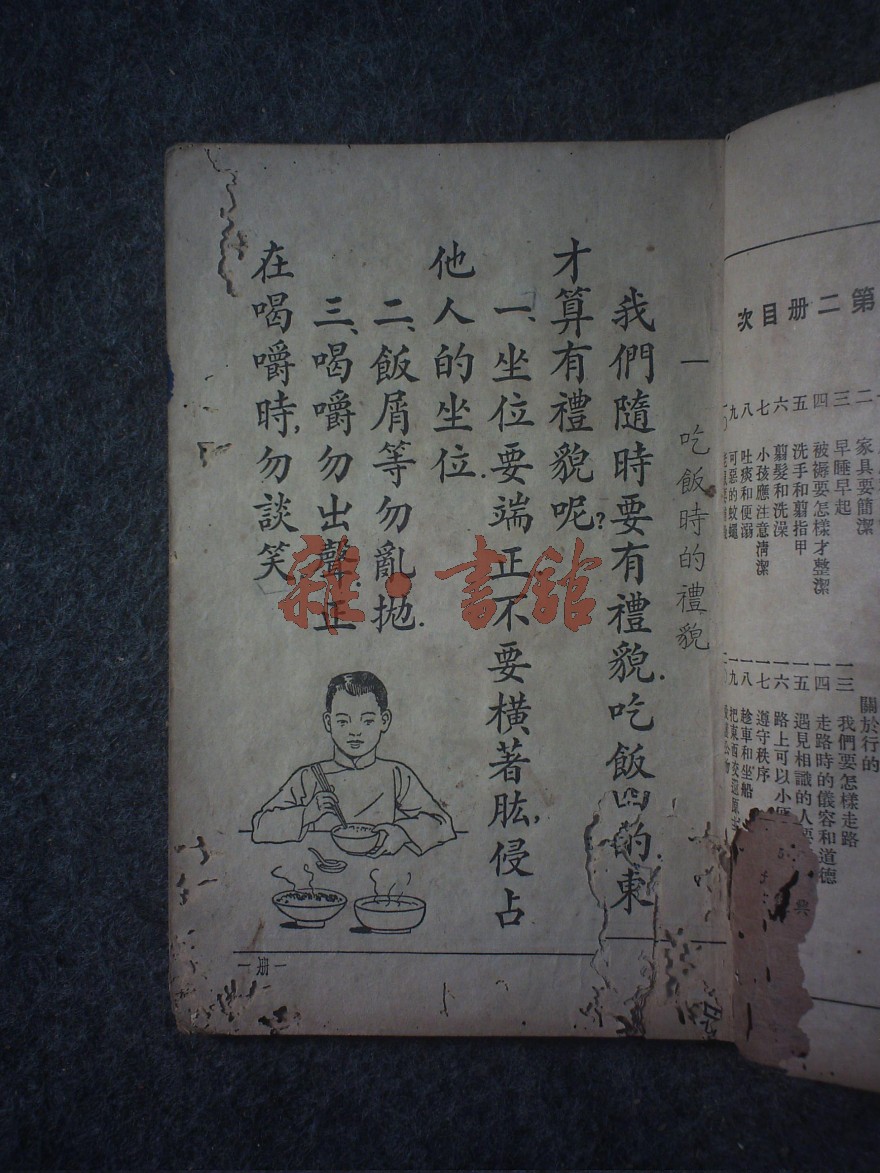 第二册目次
家具要簡潔
三 早睡早起
四 被褥要怎樣才整潔
五 洗手和翦指甲
六 翦髮和洗澡
七 小孩應注意清潔
八 吐痰和便溺
九 可惡的蚊蠅
關於行的
一三 我們要怎樣走路
一四 走路時的儀容和道德
一五 遇見相識的人
一六 路上可以小便
一七 遵守秩序
一八 趁車和坐船
一九 把東西
一 吃飯時的禮貌
我們隨時要有禮貌.吃飯 的 東
才算有禮貌呢?
一、坐位要端正不要橫著肱,侵占
他人的坐位.
二、飯屑等勿亂拋.
三、喝嚼勿出聲;正
在喝嚼時,勿談笑
一册一
雜·書館